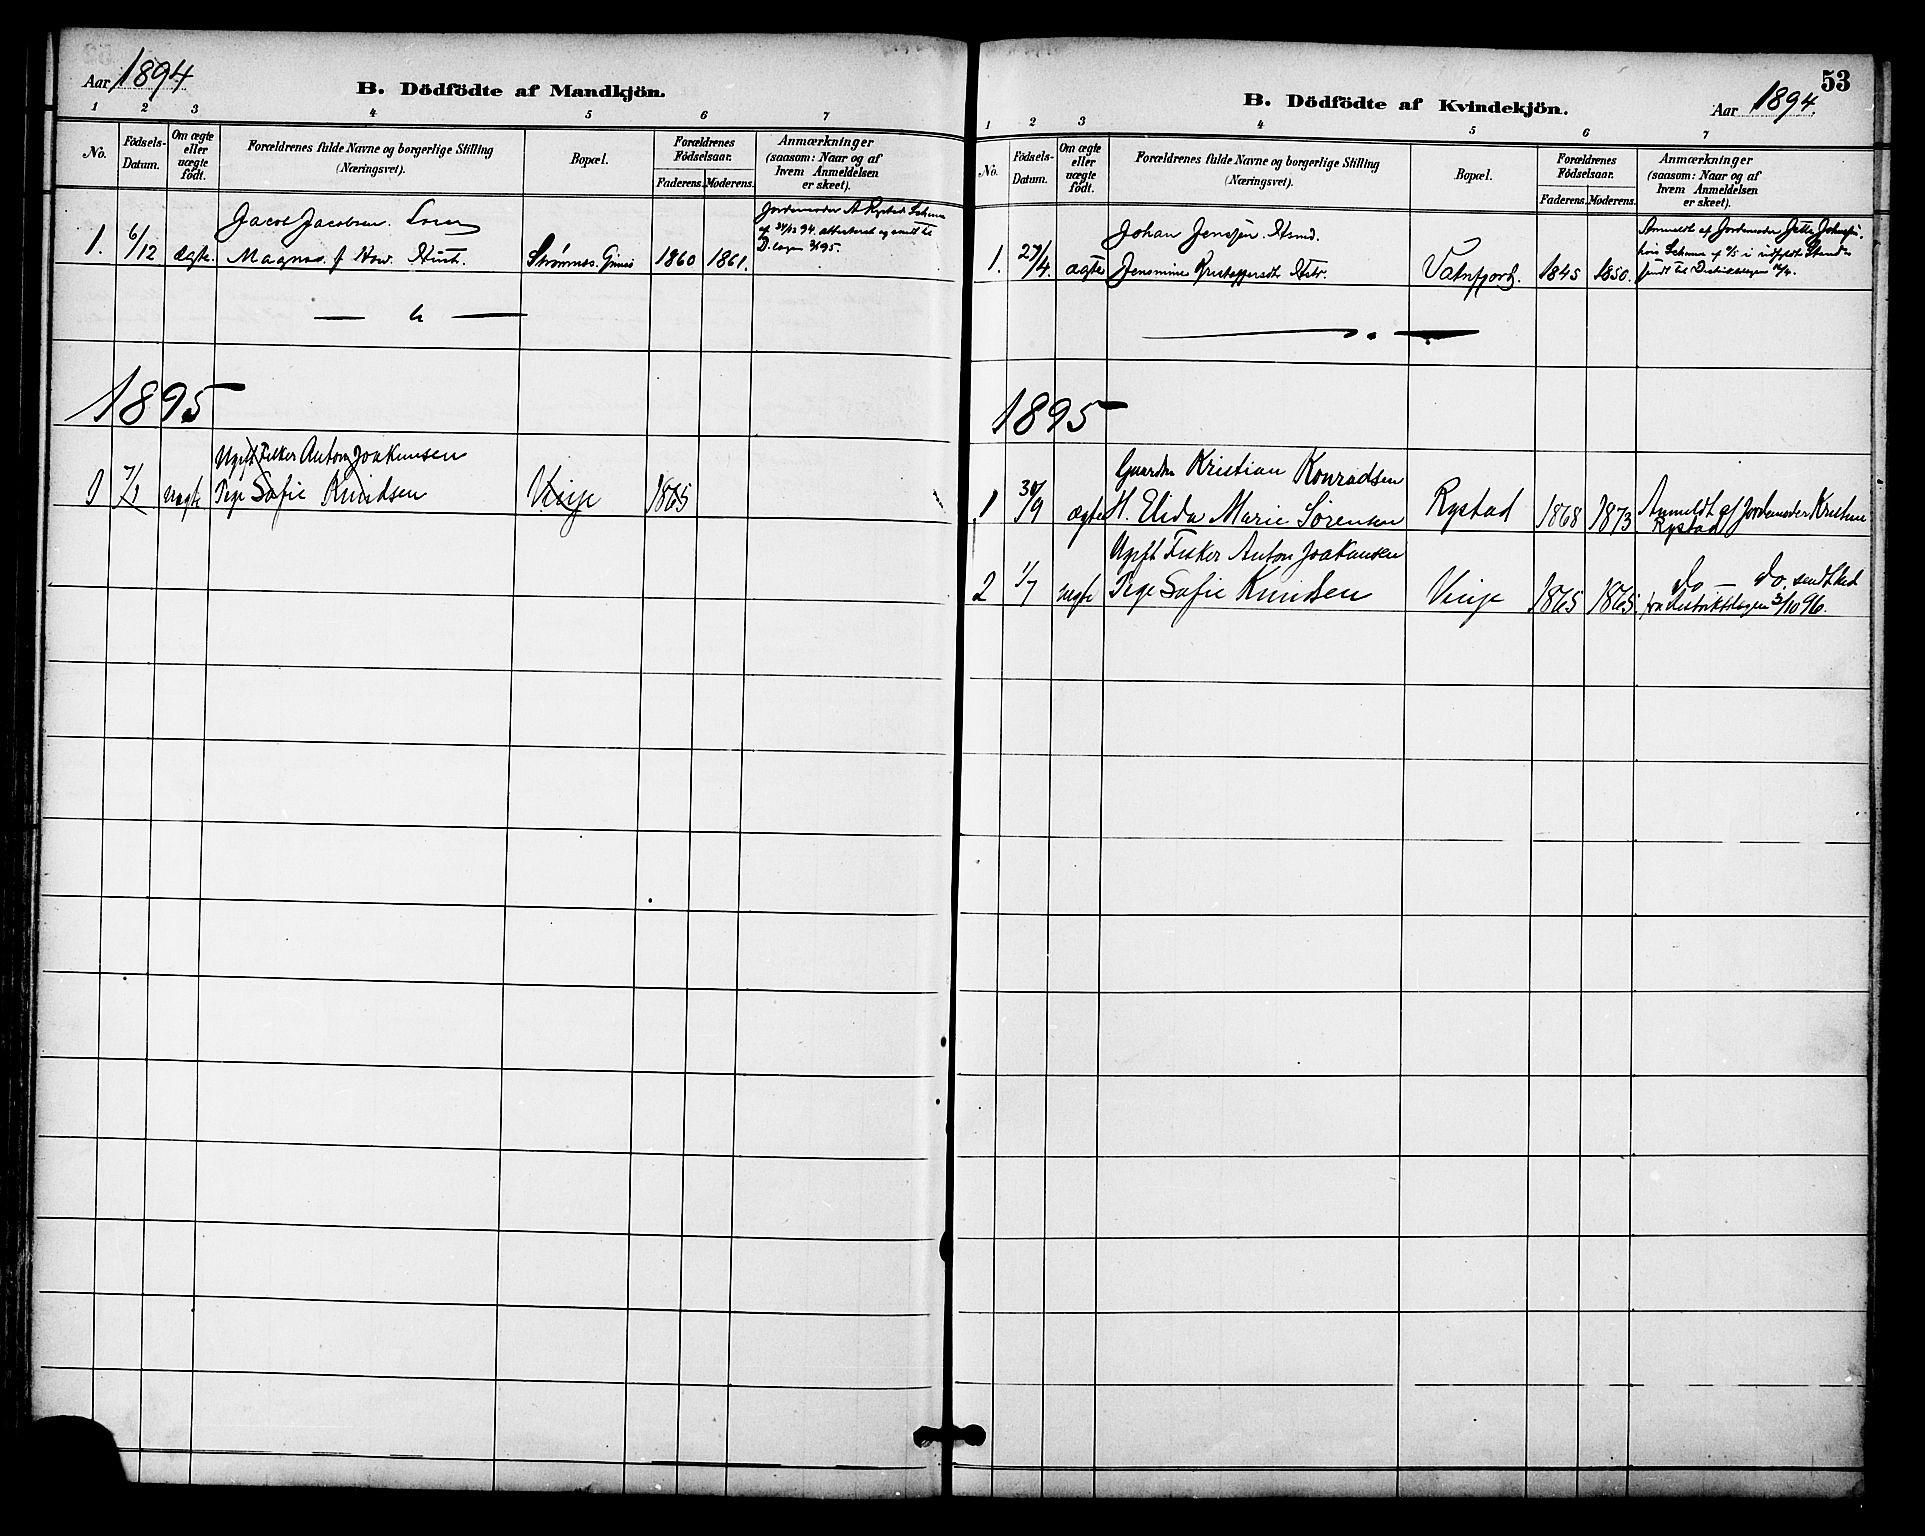 Aar 1894
B. Dödfödte af Mandkjön.
1 2 3 4 5 6 7
No.
Födsels-Datum.
Om ægte eller uægte födt.
Forældrenes fulde Navne og borgerlige Stilling
(Næringsvei).
Bopæl.
Forældrenes Födselsaar.
Faderens. Moderens.
Anmærkninger
(saasom: Naar og af
hvem Anmeldelsen
er skeet).
Jacob Jacobsen.
1. 6/12 Ægte. Magnas. f Strømnes. Gimsø 1860 1861.
Jordemoder A Rystad Schema
af 31/12 94. attesteret og sendt til
D.lægen 3/1 95.
1895
Ugift Fisker Anton Joakimsen
1 7/1 uægte Pige Sofie Knudsen Vinje 1865
53
B. Dödfödte af Kvindekjön.
Aar 1894.
1 2 3 4 5 6 7
No.
Födsels-Datum.
Om ægte eller uægte födt.
Forældrenes fulde Navne og borgerlige Stilling
(Næringsvei).
Bopæl.
Forældrenes Födselsaar.
Faderens. Moderens.
Anmærkninger
(saasom: Naar og af
hvem Anmeldelsen
er skeet).
Johan Jenssen. Hsmd.
1. 27/4. ægte Jensmine Kristoffersdt Hstr. Vatnfjord. 1845 1850.
Anmeldt af Jordemoder Jette
hvis Schema af i udfyldt Stand
sendt til Distriktslægen
1895
Gaardm Kristian Konradsen
1 30/9 ægte H. Elida Marie Sörensen Rystad 1868 1873 Anmeldt af Jordemoder Kristine
Rystad
Ugift Fisker Anton Joakimsen
2 1/7 uægte Pige Sofie Knudsen Vinje 1865 1865. do — do. sendt
fra Distriktslægen 3/10 96.